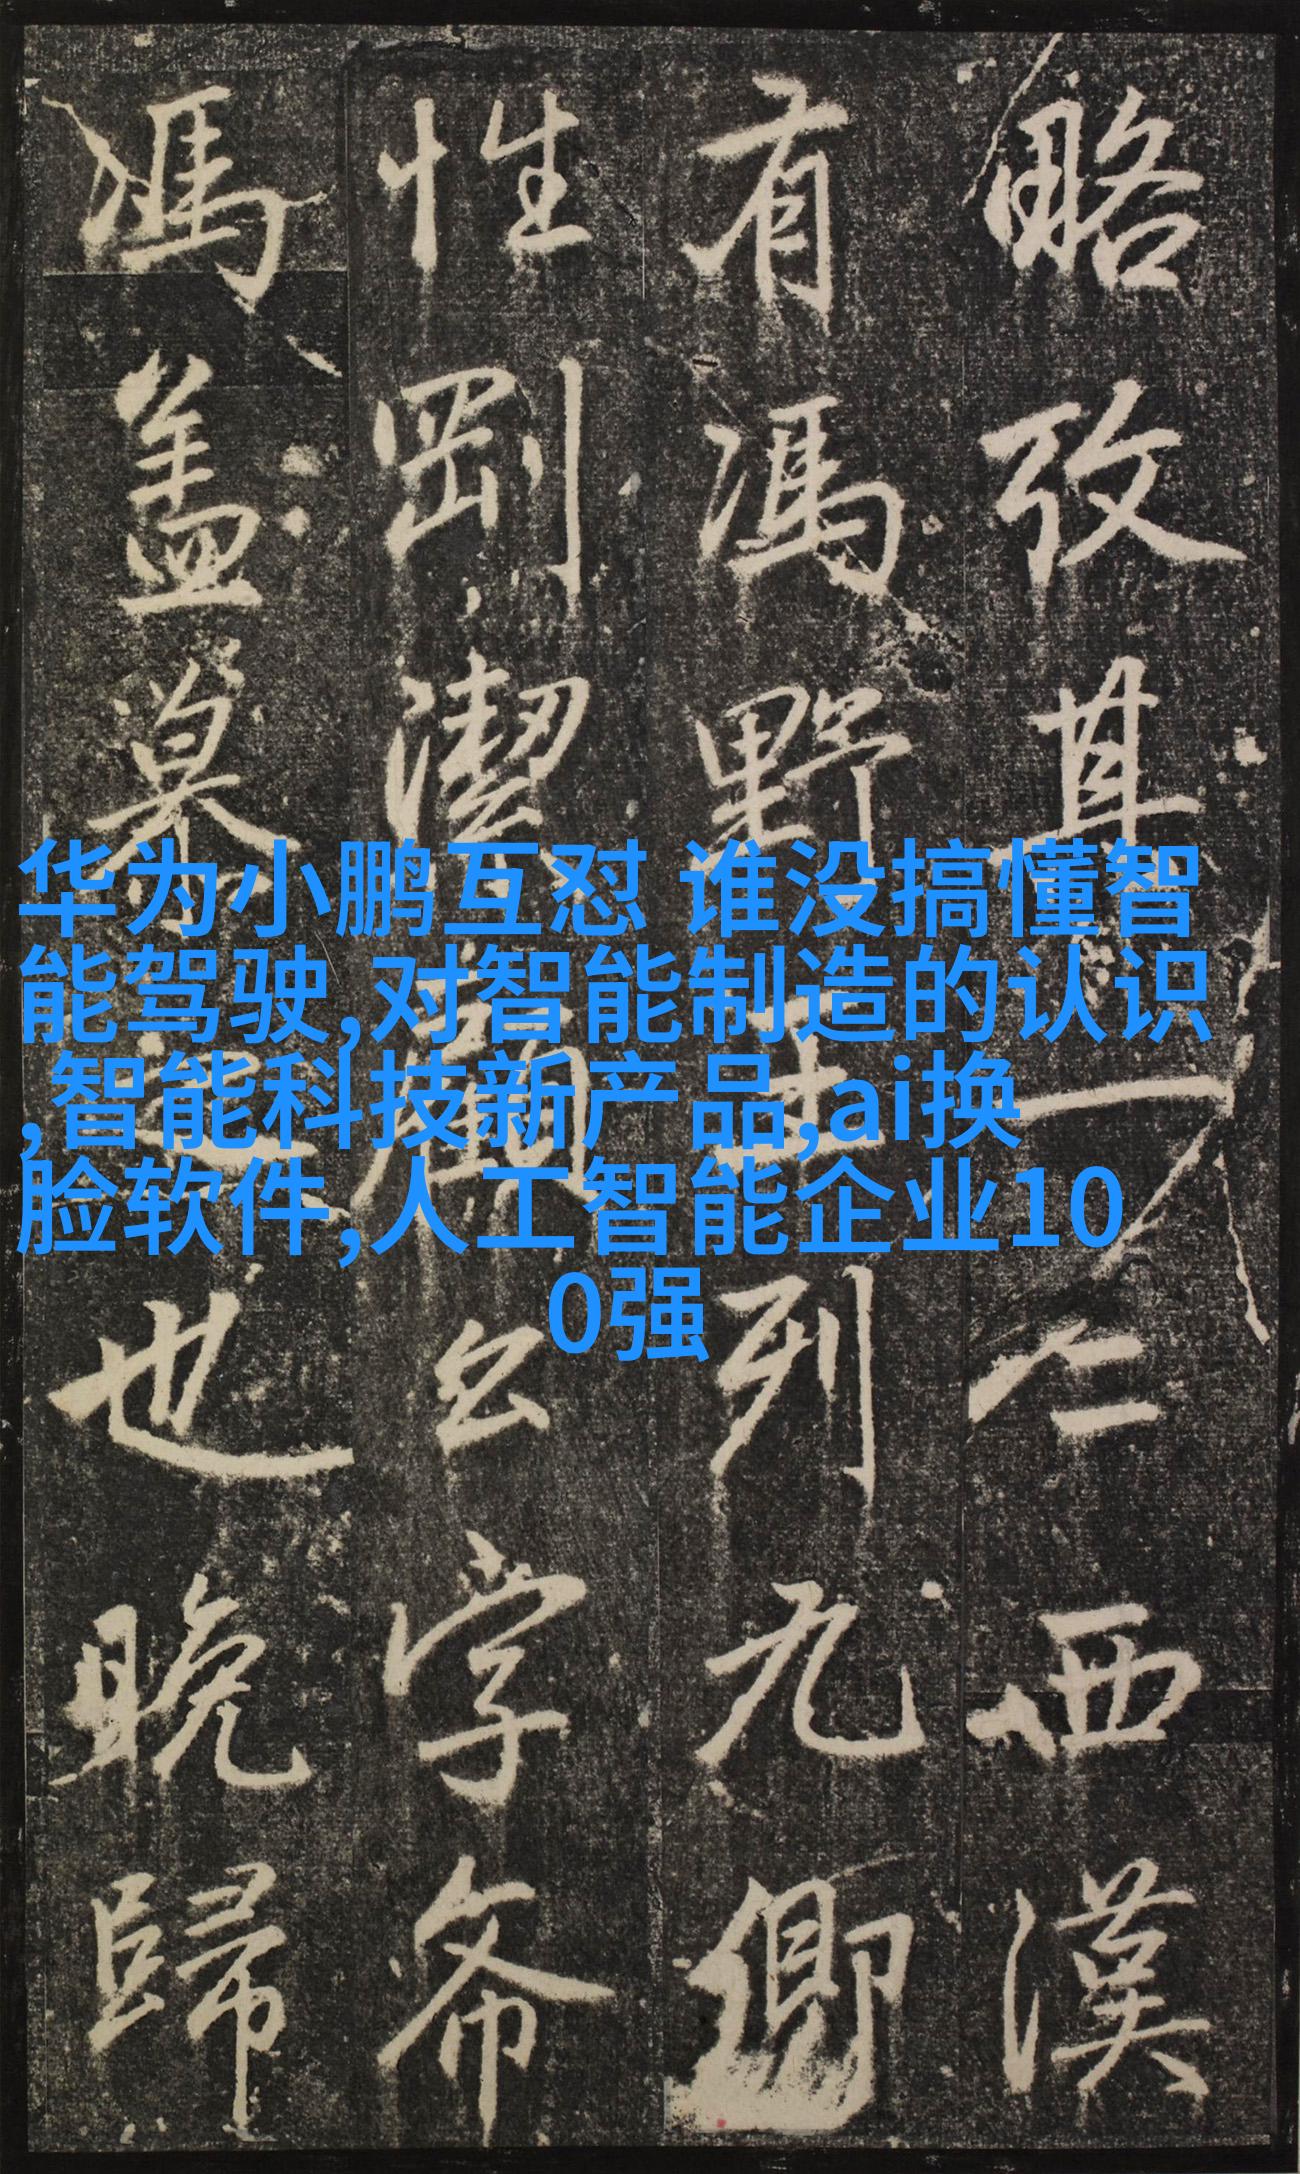 华为小鹏互怼 谁没搞懂智
能驾驶,对智能制造的认识
,智能科技新产品,ai换
脸软件,人工智能企业10
0强
略攷其一二西漢
有馮野王列九卿
性剛潔顧公字希
馮盖慕之也晚歸